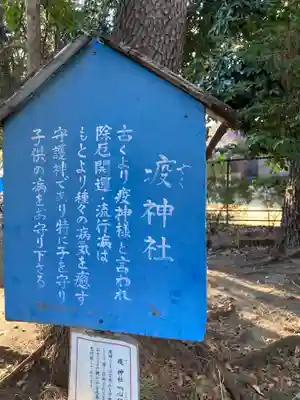 疫神社
やく
古くより疫神様と言われ
除厄開運・流行病は
もとより種々の病気を癒す
守護神であり特に子を守り
子供の病をお守り下さる
疫神社